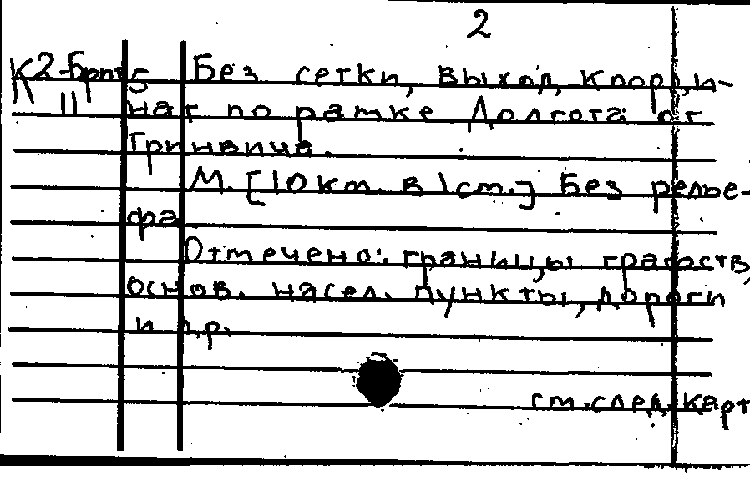 2
К2-Брит5 Без сетки, выход, коорди-
11 нат по рамке. Долгота от
Гринвича.
М. [10 км. в 1 см.] Без релье-
фа
Отмечено: границы государств,
основ. насел. пункты, дороги
и др.
см. след. карт